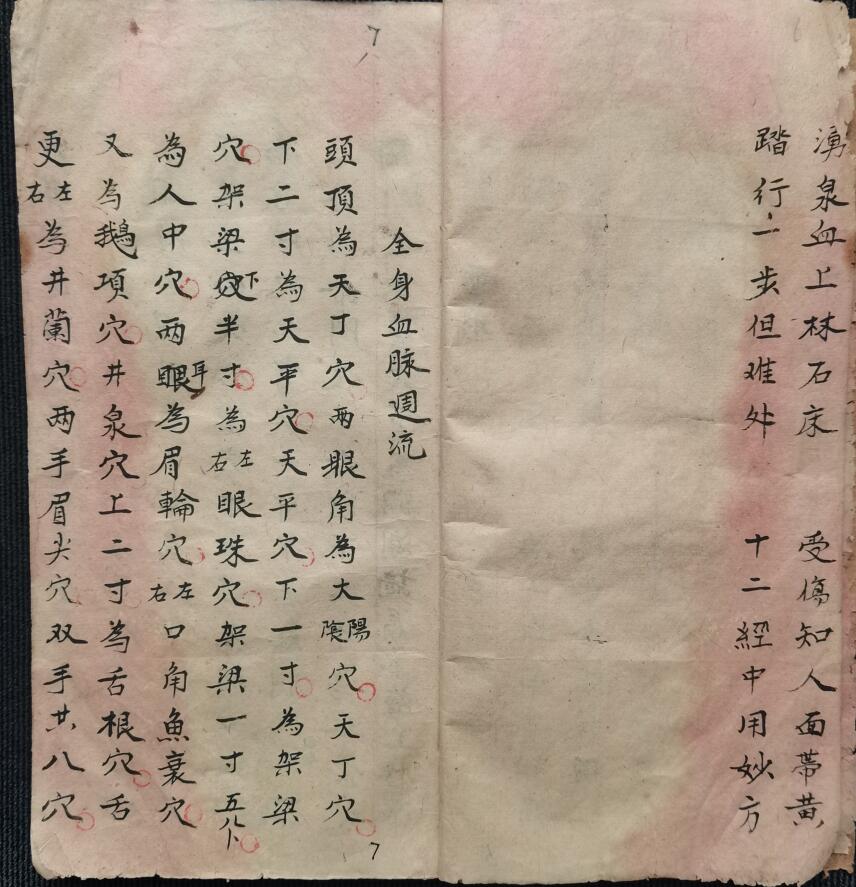 湧泉血上林石床 受傷知人面帶黃
踏行一步但难外 十二經中用妙方
7
全身血脉週流
頭頂為天丁穴两眼角為大陽陰穴天丁穴
下二寸為天平穴天平穴下一寸為架梁
穴架梁穴下半寸為左右眼珠穴架梁一寸五分
為人中穴两眼耳為眉輪穴左右口角魚衰穴
又為鵝項穴井泉穴上二寸為舌根穴舌
更左右為井蘭穴两手眉尖穴双手共八穴
7